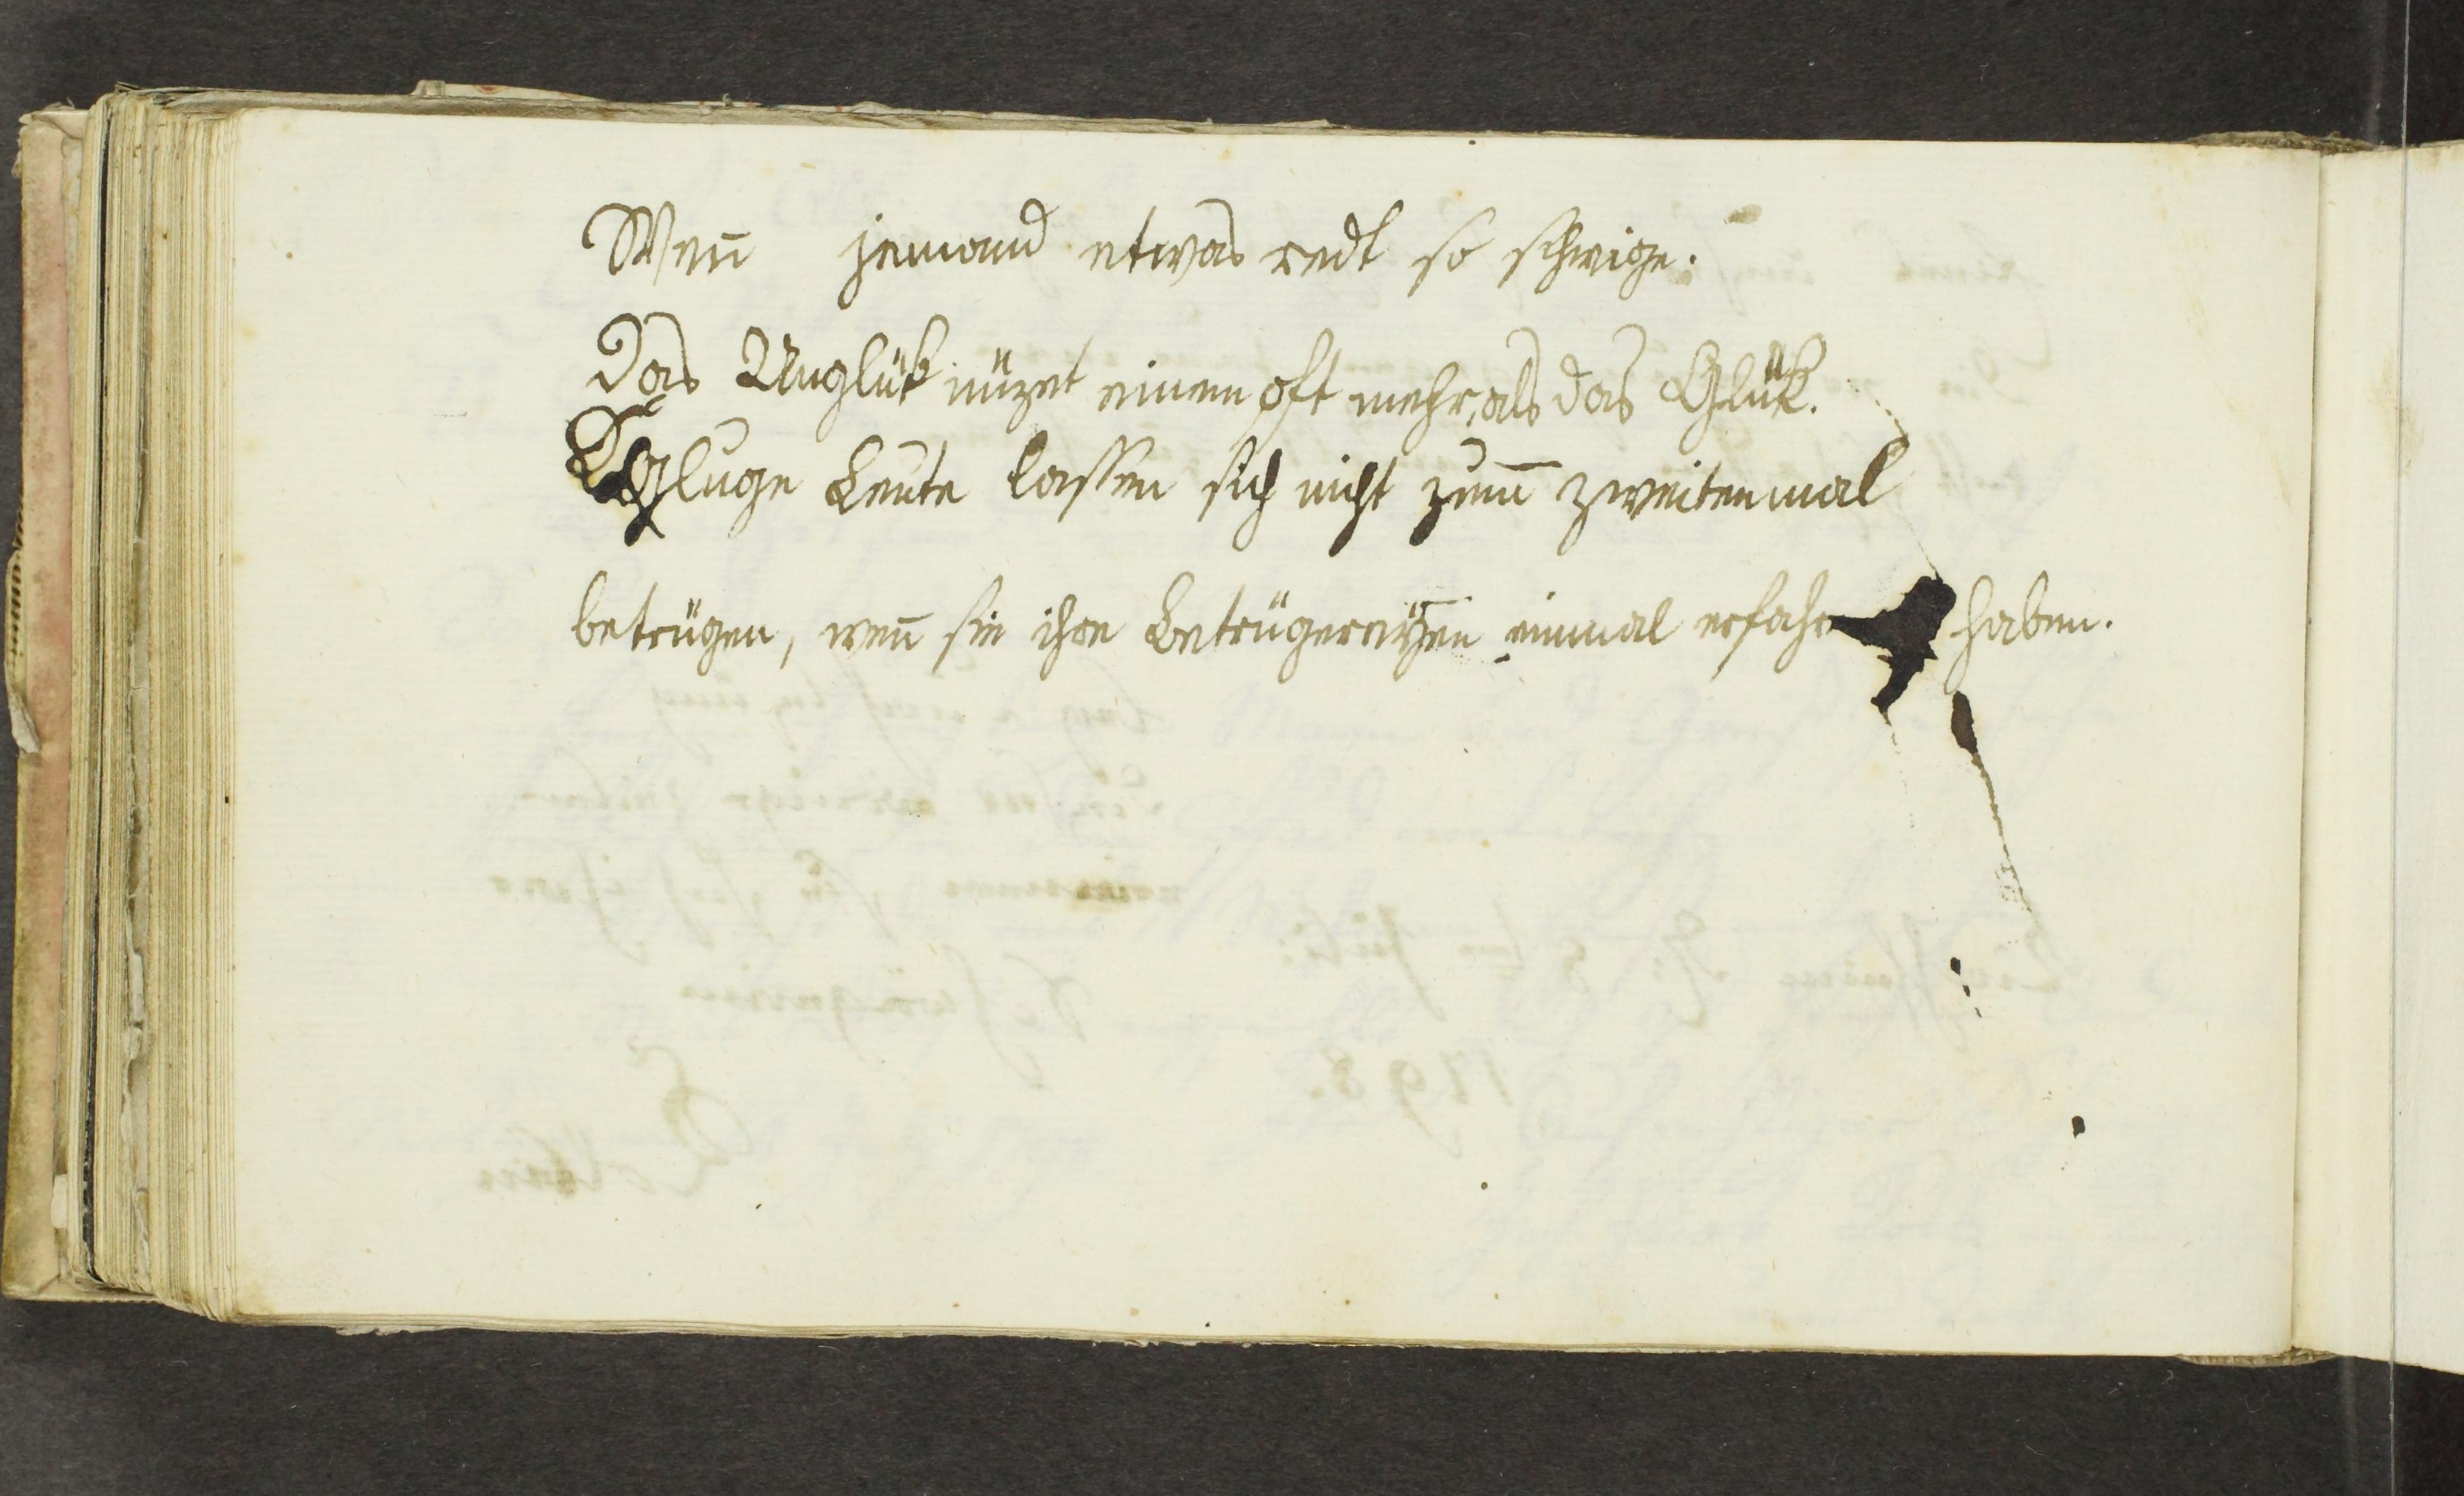 Wen̅ jemand etwas redt so schwige.
Das Unglük nüzet einem oft mehr, als das Glük.
Kluge Leute lassen sich nicht zum zweitenmal
betrügen, wen̅ sie ihre Betrügereyen einmal erfahr haben.